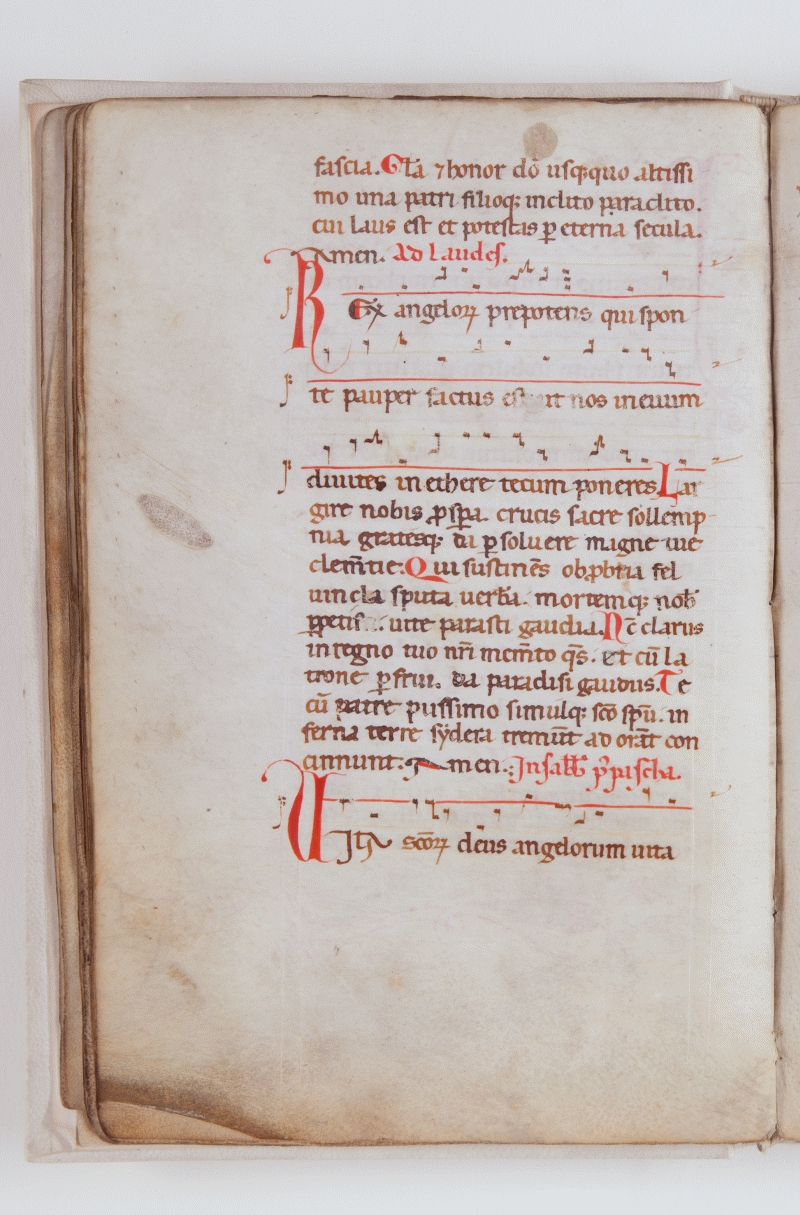 fascia. Gl̄a ⁊ honor dō usq;quo altissi
mo una patri filioq; inclito paraclito.
cui laus est et potestas ꝑ eterna secula.
Amen. Ad laudes.
REx angeloꝝ prepotens qui spon
te pauper factus es ut nos ineuum
diuites in ethere tecum poneres. Lar
gire nobis ꝓspa. crucis sacre sollemp
nia gratesq; da ꝑsoluere magne tue
clem̄tie. Qui sustinēs obꝓbria fel
uincla sputa uerb̄a. mortemq; nob̄
uite parasti gaudia. Nc̄ clarus
in regno tuo nr̄i mem̄to q̄s. et cū la
trone ꝑfrui. da paradisi gaudiis. Te
cū patre piissimo simulq; sc̄o sp̄u. in
ferna terre sydera tremūt ad orāt con
cinnunt. Amen. In sabb̄ p̄ pascha.
UIta sc̄oꝝ deus angelorum uita